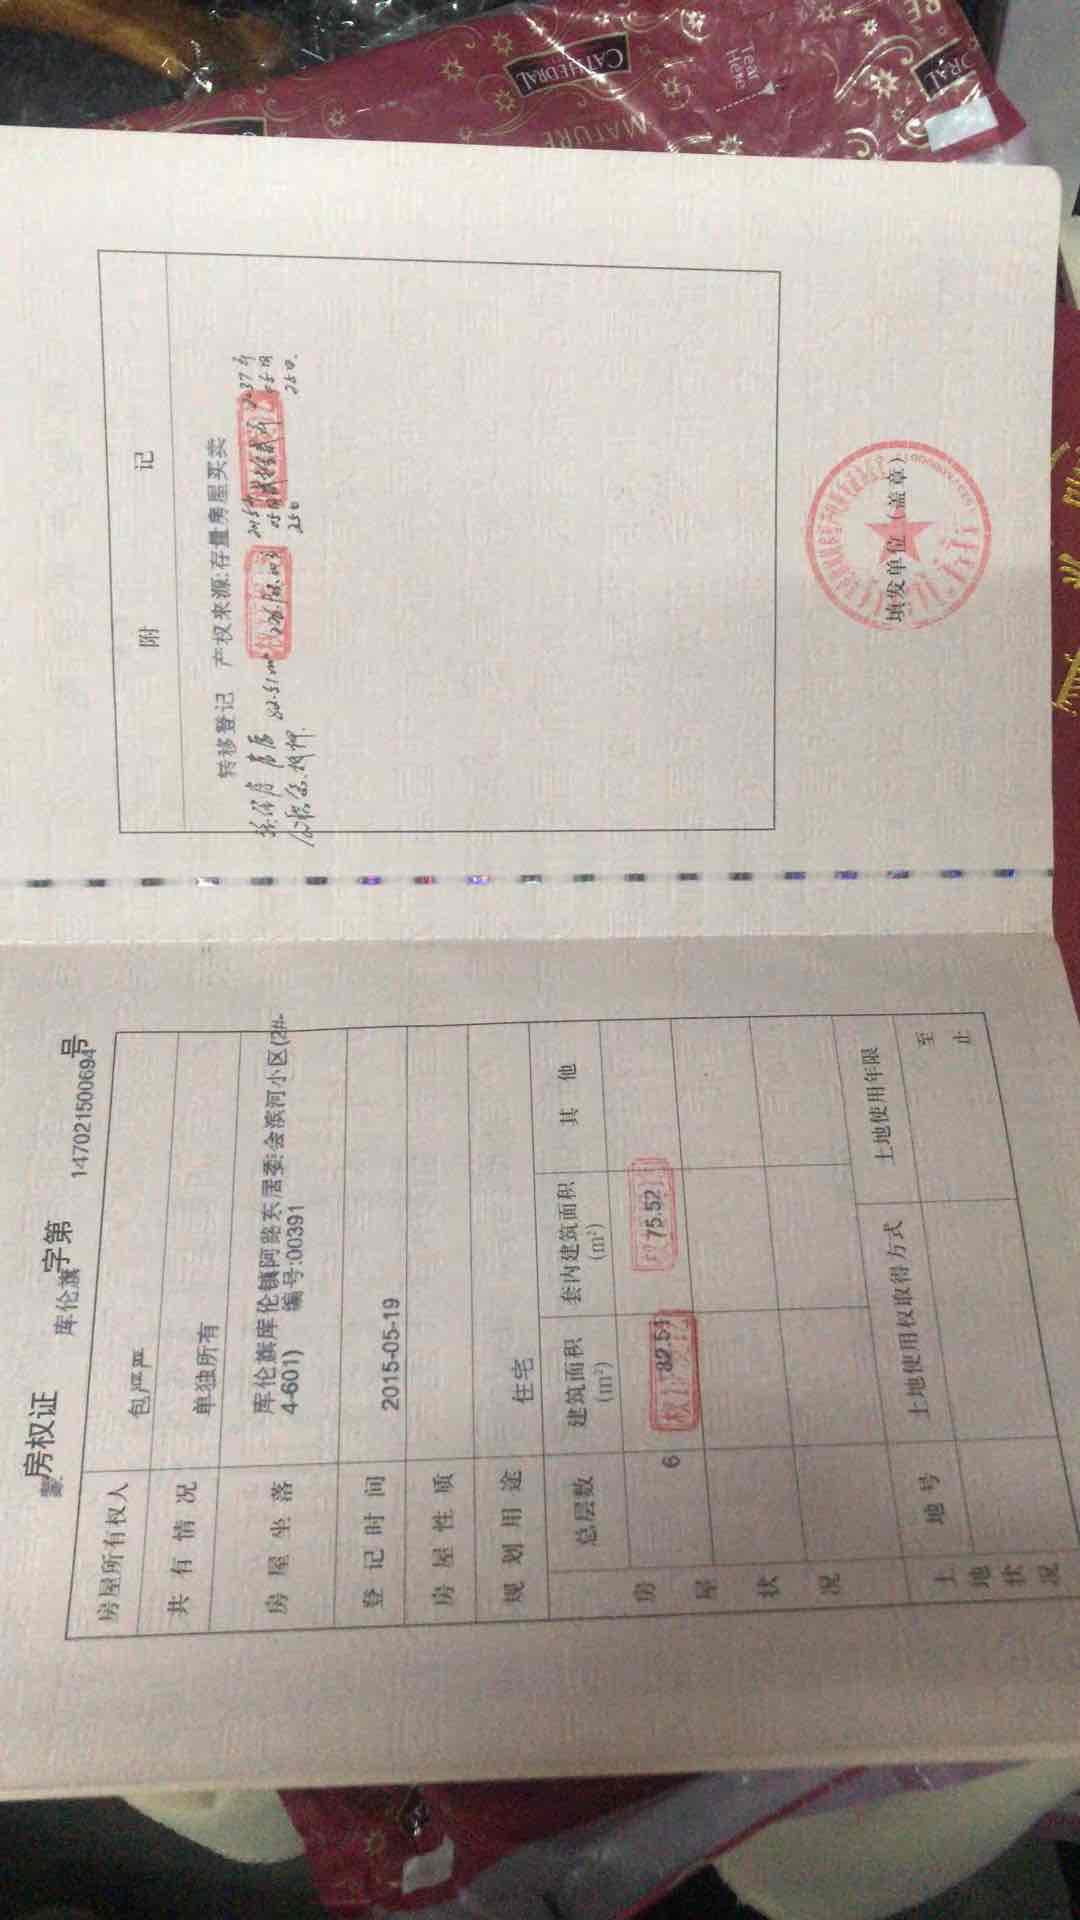 蒙
房权证
库伦旗
字第
147021500694
号
房屋所有权人
包严严
共有情况
单独所有
房屋坐落
库伦旗库伦镇阿路东居委会滨河小区(2#-
4-601)
编号:00391
登记时间
2015-05-19
房屋性质
规划用途
住宅
房屋状况
总层数
建筑面积
(m²)
套内建筑面积
(m²)
其他
6
82.51
75.52
土地状况
地号
土地使用权取得方式
土地使用年限
至
止
附 记
转移登记 产权来源:存量房屋买卖
82.51m²
2015年
2037年
05月
05月
25日
25日.
公积金抵押.
填发单位(盖章)
CATHEDRAL
Tear
Here
MATURE